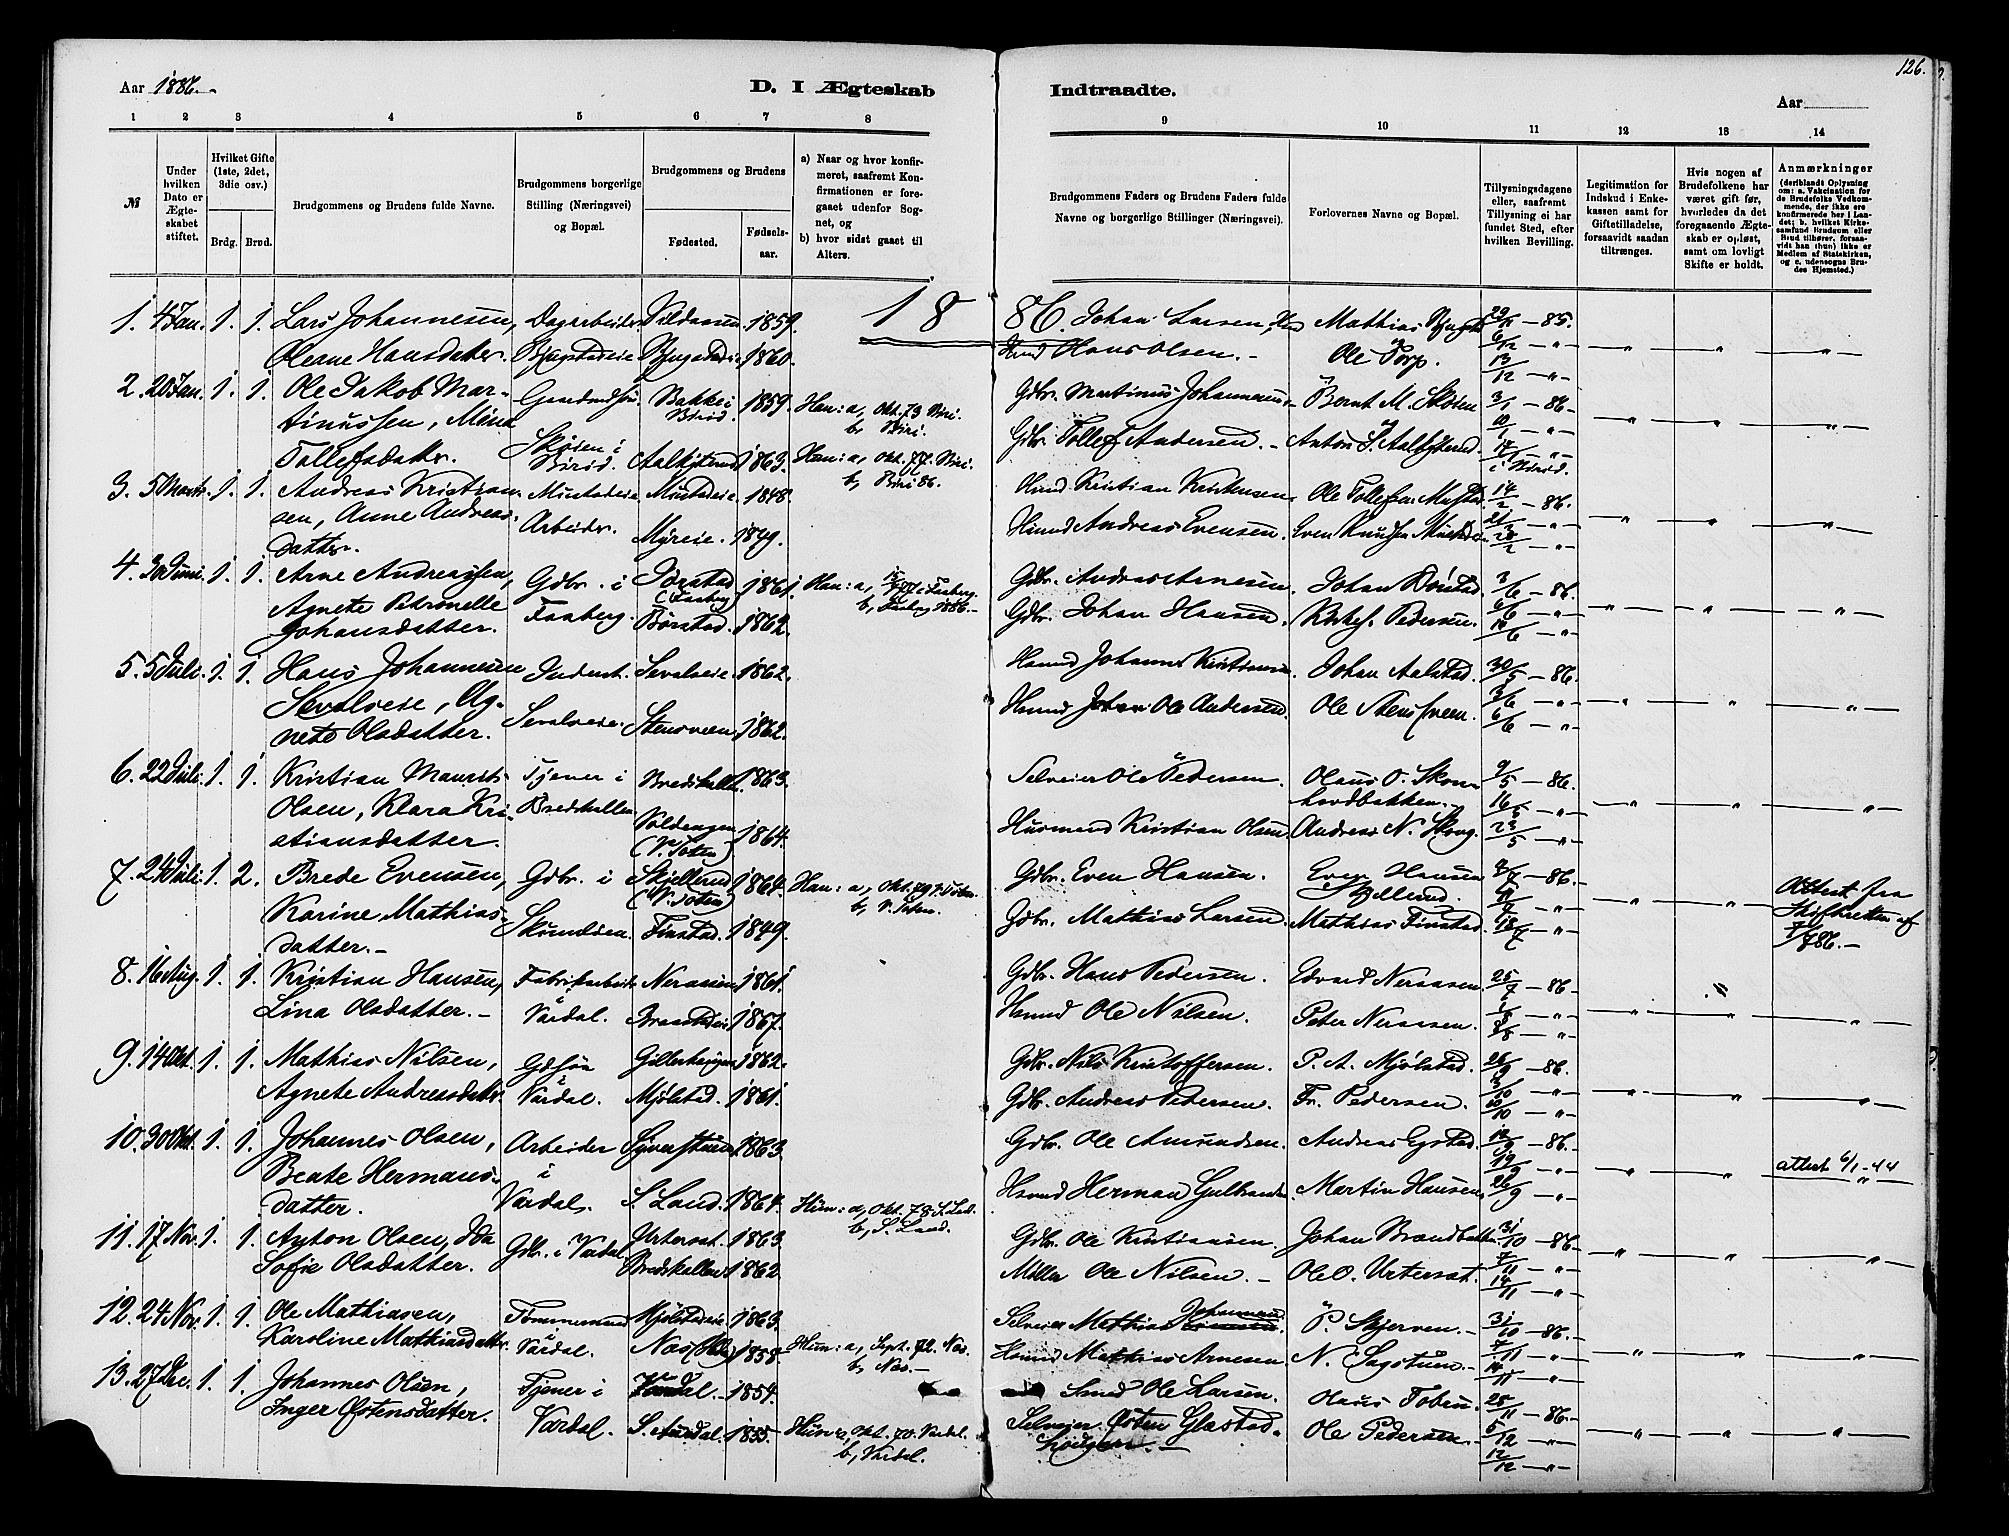 Aar 1886.
D. I Ægteskab
Indtraadte.
126.
Aar
1 2 3 4 5 6 7 8 9 10 11 12 13 14
№
Under hvilken Dato er Ægteskabet stiftet.
Hvilket Gifte (1ste, 2det, 3die osv.)
Brdg. Brud.
Brudgommens og Brudens fulde Navne.
Brudgommens borgerlige Stilling (Næringsvei) og Bopæl.
Brudgommens og Brudens
Fødested.
Fødselsaar.
a) Naar og hvor konfirmeret, saafremt Konfirmationen er foregaaet udenfor Sognet, og
b) hvor sidst gaaet til Alters.
Brudgommens Faders og Brudens Faders fulde Navne og borgerlige Stillinger (Næringsvei).
Forlovernes Navne og Bopæl.
Tillysningsdagene eller, saafremt Tillysning ei har fundet Sted, efter hvilken Bevilling.
Legitimation for Indskud i Enkekassen samt for Giftetilladelse, forsaavidt saadan tiltrænges.
Hvis nogen af Brudefolkene har været gift før, hvorledes da det foregaaende Ægteskab er opløst, samt om lovligt Skifte er holdt.
Anmærkninger (deriblandt Oplysning om: a. Vakcination for de Brudefolks Vedkommende, der ikke ere konfirmerede her i Landet; b. hvilket Kirkesamfund Brudgum eller Brud tilhører, forsaavidt han (hun) ikke er Medlem af Statskirken, og c. udensogns Brudes Hjemsted.)
18 86.
1. 4 Jan. 1. 1. Lars Johannesen, Dagarbeider 1859. Johan Larsen, Mathias 29/11 - 85.
Oleane Hansdatter. 1860. Hmd Hans Olsen. - Ole Torp. 6/12 - " -
13/12 - " -
2. 20 Jan. 1. 1. Ole Jakob Martinussen, Mina Gaardmdsøn Bakke i Birid 1859. Han: a, Okt. 73 Biri. b, Biri. Gdbr. Martinus Johannesen. Bernt M. Skøien 3/1 - 86.
10/1 - " -
Tollefsdatter. Skøien i Birid. 1863. Hun: a, Okt. 77. Biri. b, Biri 86. Gdbr. Tollef Andersen. - Anton 17/1 - " - i Birid.
3. 5 Marts. 1. 1. Andreas Kristiansen, Anne Andreasdatter. Mustadeie Arbeider. Mustadeie 1848. Hmd Kristian Kristensen Ole Tollefsen Mustad 14/2 - 86.
Myreie. 1849. Hmd Andreas Evensen. Even Knudsen 21/2 - " -
28/2 - " -
4. 30 Juni. 1. 1. Arne Andreassen, Gdbr. i Faaberg. Jørstad (Faaberg) 1861. Han: a, 77 i Faaberg. b, Faaberg 1886. - Gdbr. Andreas Arnesen. Johan Børstad. 3/6 - 86.
Agnete Petronelle Johansdatter. Børstad. 1862. Gdbr. Johan Hansen. Kristof. Pedersen. 6/6 - " -
5. 5 Juli. 1. 1. Hans Johannesen Sevalveie, Agnete Olsdatter. Inderst. Sevalveie. Sevalveie. 1862. Hmd Johannes Kristiansen. Johan Aalstad. 30/5 - 86.
Stensveen. 1862. Hmd Ole Andersen. Ole Stensveen. 3/6 - " -
6/6 - " -
6. 22 Juli. 1. 1. Kristian Maurits Olsen, Klara Kristiansdatter. Tjener i Bredskallen. Bredskallen. 1863. Selveier Ole Pedersen. Olaus O. Skonhovdbakken. 9/5 - 86.
16/5 - " -
Voldengen (V. Toten) 1864. Husmand Kristian Olsen. Andreas N. Skoug. 23/5 - " -
7. 24 Juli. 1. 2. Brede Evensen, Gdbr. i Skjellerud (V. Toten) 1864. Han: a, Okt. 79 V. Toten. b, V. Toten. Gdbr. Even Hansen. Even Hansen Skjellerud. - 86.
Karine Mathiasdatter. - Finstad. 1849. Gdbr. Mathias Larsen. Mathias Finstad. 18/7 - " -
Attest fra Skifteretten af 7/7 86. -
8. 16 Aug. 1. 1. Kristian Hansen, Fabrikarbeider Vardal. Neraasen. 1861. Gdbr. Hans Pedersen. Edvard Neraasen. 25/7 - 86.
Lina Olsdatter. - 1867. Hmd Ole Nilsen. Peter Neraasen. 1/8 - " -
8/8 - " -
9. 14 Okt. 1. 1. Mathias Nilsen, Gdsøn Vardal. Gillerhaugen 1862. Gdbr. Nils Kristoffersen. P. A. Mjølstad. 26/9 - 86.
Agnete Andreasdatter. Mjølstad. 1861. Gdb. Andreas Pedersen. Fr. Pedersen. 3/10 - " -
10/10 - " -
10. 30 Okt. 1. 1. Johannes Olsen, Arbeider i Vardal. 1863. Gdbr. Ole Amundsen. Andreas Egstad. 12/9 - 86.
Beate Hermansdatter. S. Land. 1864. Hun: a, Okt. 78 S. Land. b, S. Land. Hmd Herman Gulbrandsen. Martin Hansen. 19/9 - " -
26/9 - " -
attest 6/1 - 44
11. 17 Nov. 1. 1. Anton Olsen, Ida Gdbr. i Vardal. Urterset. 1863. Gdbr. Ole Kristiansen. Johan Brandbakken. 31/10 - 86.
Sofie Olsdatter. Bredskallen 1862. Møller Ole Nilsen. - Ole O. Urterset. 7/11 - " -
14/11 - " -
12. 24 Nov. 1. 1. Ole Mathiasen, Tømmermand Vardal. Mjølstadeie 1863. Selveier Mathias Johannesen P. Skjerven. - 31/10 - 86.
Karoline Mathiasdatter. Næs (Hed.) 1858. Hun: a, Sept. 72. Næs. b, Næs. - Hmd Mathias Arnesen. N. Sagstuen. - 7/11 - " -
14/11 - " -
13. 27 Dec. 1. 1. Johannes Olsen, Tjener i Vardal. Vardal. 1854. Smed Ole Larsen. Olaus 28/11 - 86.
Inger Østensdatter. S. Aurdal. 1855. Hun: a, Okt. 70. Vardal. b, Vardal. Selveier Østen Glæstad. Ole Pedersen. 5/12 - " -
12/12 - " -